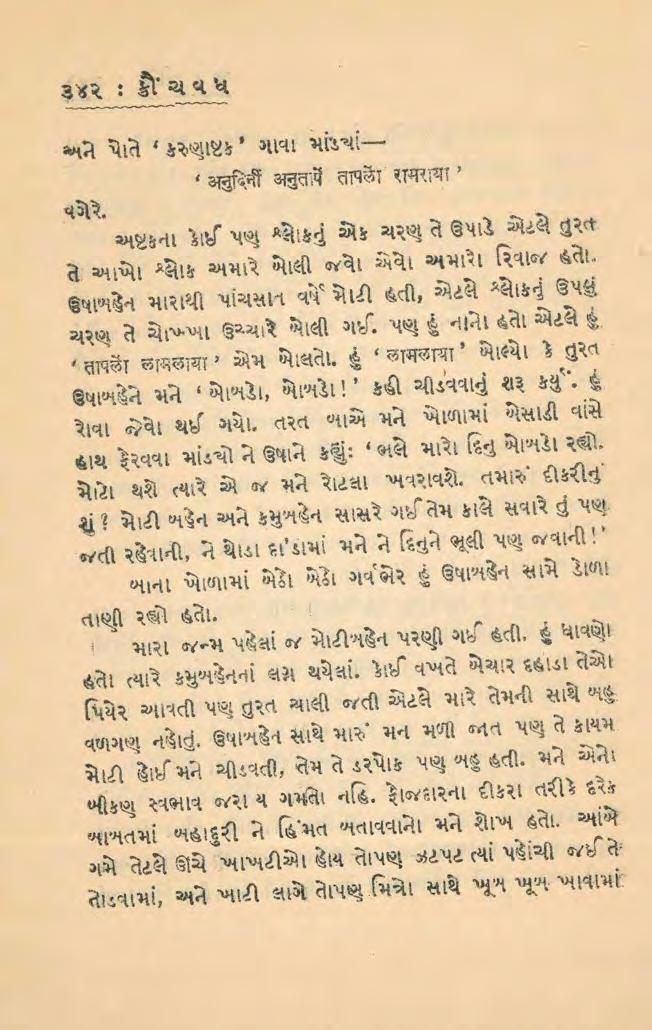 ૩૪૨ : ક્રૌંચવધ
અને પોતે ‘ કરુણાષ્ટક ’ ગાવા માંડ્યાં—
‘ अनुदिनीं अनुतापें तापलों रामराया ’
વગેરે.
અષ્ટકના કોઈ પણ શ્લોકનું એક ચરણ તે ઉપાડે એટલે તુરત
તે આખો શ્લોક અમારે બોલી જવો એવો અમારો રિવાજ હતો.
ઉષાબહેન મારાથી પાંચસાત વર્ષે મોટી હતી, એટલે શ્લોકનું ઉપલું
ચરણ તે ચોખ્ખા ઉચ્ચારે બોલી ગઈ. પણ હું નાનો હતો એટલે હું
‘ तापलों लामलाया ’ એમ બોલતો. હું ‘ लामलाया ’ બોલ્યો કે તુરત
ઉષાબહેને મને ‘ બોબડો, બોબડો! ’ કહી ચીડવવાનું શરૂ કર્યું. હું
રોવા જેવો થઈ ગયો. તરત બાએ મને ખોળામાં બેસાડી વાંસે
હાથ ફેરવવા માંડ્યો ને ઉષાને કહ્યું: ‘ ભલે મારો દિનુ બોબડો રહ્યો.
મોટો થશે ત્યારે એ જ મને રોટલા ખવરાવશે. તમારું દીકરીનું
શું ? મોટી બહેન અને કમુબહેન સાસરે ગઈ તેમ કાલે સવારે તું પણ
જતી રહેવાની, ને થોડા દા'ડામાં મને ને દિનુને ભૂલી પણ જવાની! ’
બાના ખોળામાં બેઠો બેઠો ગર્વભેર હું ઉષાબહેન સામે ડોળા
તાણી રહ્યો હતો.
મારા જન્મ પહેલાં જ મોટીબહેન પરણી ગઈ હતી. હું ધાવણો
હતો ત્યારે કમુબહેનનાં લગ્ન થયેલાં. કોઈ વખતે બેચાર દહાડા તેઓ
પિયેર આવતી પણ તુરત ચાલી જતી એટલે મારે તેમની સાથે બહુ
વળગણ નહોતું. ઉષાબહેન સાથે મારું મન મળી જાત પણ તે કાયમ
મોટી હોઈ મને ચીડવતી, તેમ તે ડરપોક પણ બહુ હતી. મને એનો
બીકણ સ્વભાવ જરા ય ગમતો નહિ. ફોજદારના દીકરા તરીકે દરેક
બાબતમાં બહાદુરી ને હિંમત બતાવવાનો મને શોખ હતો. આંબે
ગમે તેટલે ઊંચે ખાખટીઓ હોય તોપણ ઝટપટ ત્યાં પહોંચી જઈ તે
તોડવામાં, અને ખાટી લાગે તોપણ મિત્રો સાથે ખૂબ ખૂબ ખાવામાં